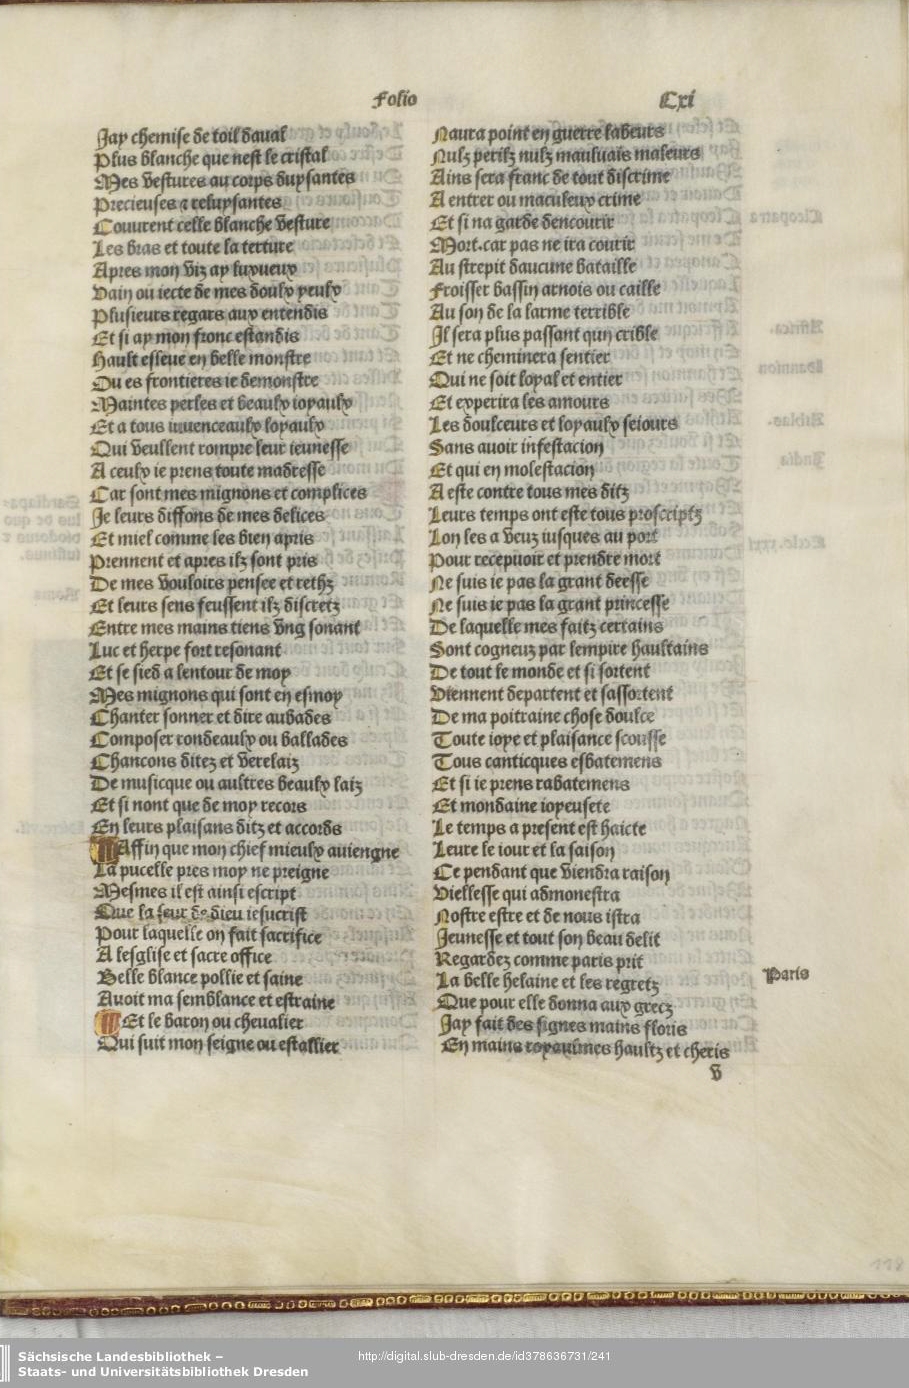 Folio Cxi
Jay chemise de toil daual
Plus blanche que nest le cristal
Mes vestures au corps duysantes
Precieuses ⁊ reluysantes
Couurent celle blanche vesture
Les bras et toute la tecture
Apres mon viz ay luxueux
Vain ou iecte de mes doulx yeulx
Plusieurs regars aux entendis
Et si ay mon fronc estandis
Hault esleue en belle monstre
Ou es frontieres ie demonstre
Maintes perles et beaulx ioyaulx
Et a tous iuuenceaulx loyaulx
Qui veullent rompre leur ieunesse
A ceulx ie prens toute madresse
Car sont mes mignons et complices
Je leurs diffons de mes delices
Et miel comme les bien apris
Prennent et apres ilz sont pris
De mes vouloirs pensee et rethz
Et leurs sens feussent ilz discretz
Entre mes mains tiens vng sonant
Luc et herpe fort resonant
Et se sied a lentour de moy
Mes mignons qui sont en esmoy
Chanter sonner et dire aubades
Composer rondeaulx ou ballades
Chancons ditez et verelaiz
De musicque ou aultres beaulx laiz
Et si nont que de moy recors
En leurs plaisans ditz et accords
Affin que mon chief mieulx auiengne
La pucelle pres moy ne preigne
Mesmes il est ainsi escript
Que la seur de dieu iesucrist
Pour laquelle on fait sacrifice
A lesglise et sacre office
Belle blance pollie et saine
Auoit ma semblance et estraine
Et le baron ou cheualier
Qui suit mon seigne ou estallier
Naura point en guerre labeurs
Nulz perilz nulz mauluais maleurs
Ains sera franc de tout discrime
A entrer ou maculeux crime
Et si na garde dencourir
Mort.car pas ne ira courir
Au strepit daucune bataille
Froisser bassin arnois ou caille
Au son de la larme terrible
Il sera plus passant qun crible
Et ne cheminera sentier
Qui ne soit loyal et entier
Et experira les amours
Les doulceurs et loyaulx seiours
Sans auoir infestacion
Et qui en molestacion
A este contre tous mes ditz
Leurs temps ont este tous proscriptz
Lon les a veuz iusques au port
Pour recepuoir et prendre mort
Ne suis ie pas la grant deesse
Ne suis ie pas la grant princesse
De laquelle mes faitz certains
Sont cogneuz par lempire haultains
De tout le monde et si sortent
Viennent departent et sassortent
De ma poitraine chose doulce
Toute ioye et plaisance scousse
Tous canticques esbatemens
Et si ie prens rabatemens
Et mondaine ioyeusete
Le temps a present est haicte
Leure le iour et la saison
Ce pendant que viendra raison
Viellesse qui admonestra
Nostre estre et de nous istra
Jeunesse et tout son beau delit
Regardez comme paris prit
La belle helaine et les regretz
Paris
Que pour elle donna aux grecz
Jay fait des signes mains floris
En mains royaulmes haultz et cheris
v
118
Sächsische Landesbibliothek –
Staats- und Universitätsbibliothek Dresden
http://digital.slub-dresden.de/id378636731/241